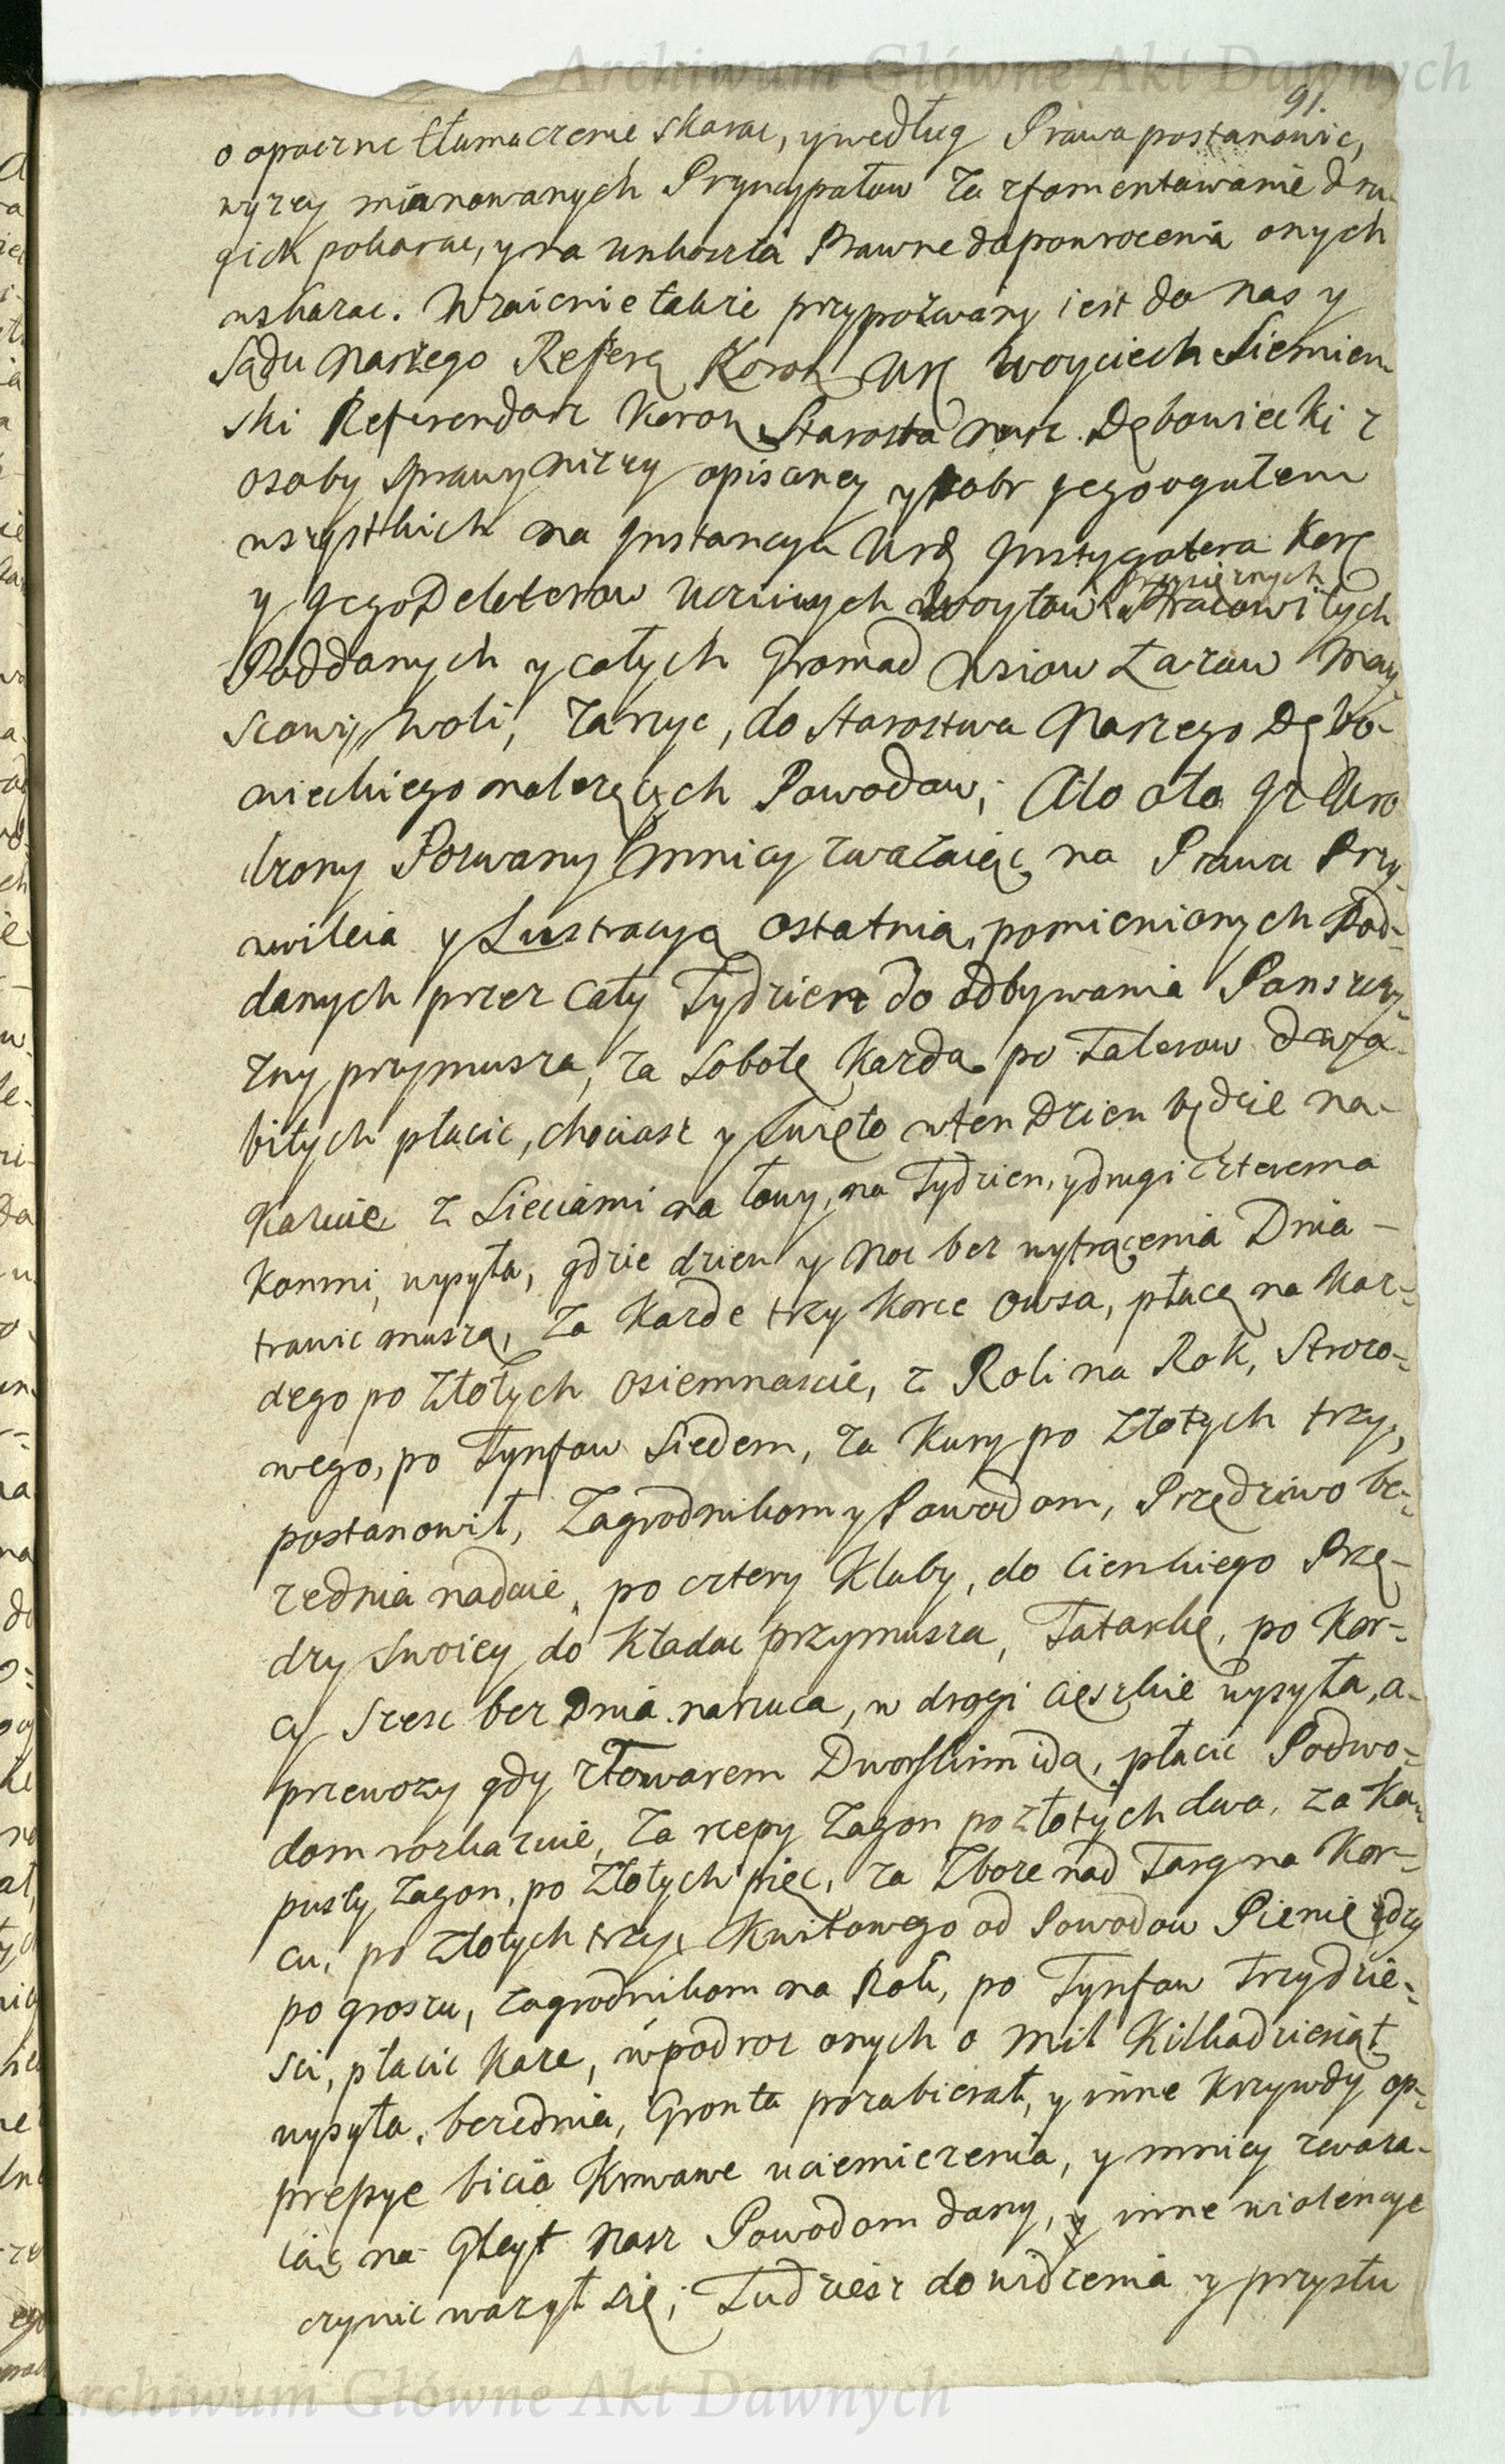 Archiwum Główne Akt Dawnych
91.
o opaczne tłumaczenie skarac, y według Prawa postanowic,
wyzey mianowanych Pryncypałow za zfomentowanie dru-
gich pokarac, y na unkoszta Prawne do powrocenia onych
wskazac. Wzaiemnie także przypozwany iest do nas y
Sądu Naszego Referą Koron Urą Woyciech Siemien
ski Referendarz Koron Starosta nasz Dębowiecki z
osoby sprawy nizey opisaney y dobr jego ogułem
wszystkich na Jnstancyą Urą Jnstygatora Korą
y Jego Delatorow Uczciwych Woytow Przysięznych Pracowitych
Poddanych y całych Gromad Wsiow Łazow May
scowy, Woli, Zarzyc, do Starostwa Naszego Dębo-
wieckiego nalezących Powodow; Ato oto Jz Uro
dzony Pozwany mniey zwazaiąc na Prawa Przy
wileia y Lustracyą ostatnią, pomienionych Pod-
danych przez cały Tydzien do odbywania Panszczy-
zny przymusza, za Sobotę kazdą po Talerow dwa
bitych płacic, chociasz y Swięto w ten Dzien będzie na-
kazuie z Sieciami na łowy, na Tydzien, y drugi czterema
konmi, wysyła, gdzie dzien y Noc bez wytrącenia Dnia –
trawic muszą, za kazde trzy korce owsa, płacą na kaz-
dego po złotych osiemnascie, z Roli na Rok, Strozo-
wego, po Tynfow Siedem, za kury po złotych trzy,
postanowił, Zagrodnikom y Powodom, Przędziwo be-
zednia nadaie, po cztery kluby, do cienkiego Przę-
dzy swoiey do kładac przymusza, Tatarkę, po kor-
cy szesc bez Dnia narzuca, w drogi cięszkie wysyła, a
przewozy gdy z Towarem Dworskim idą, płacic Podwo-
dom rozkazuie, za rzepy Zagon po złotych dwa, za ka-
pusty Zagon, po złotych pięc, za Zboze nad Targ na kor-
cu, po złotych trzy, kwitowego od Powodow Pieniędzy
po groszu, zagrodnikom na Roli, po Tynfow Trzydzie-
sci, płacic kaze, w podroz onych o mil kilkadziesiąt
wysyła, bezednia, Gronta pozabierał, y inne krzywdy op-
presye bicia krwawe uciemiezenia, y mniey zwaza-
iąc na Gleyt Nasz Powodom dany, y inne wiolencye
czynic wazył się; Tudziesz do widzenia y przysłu
Archiwum Główne Akt Dawnych